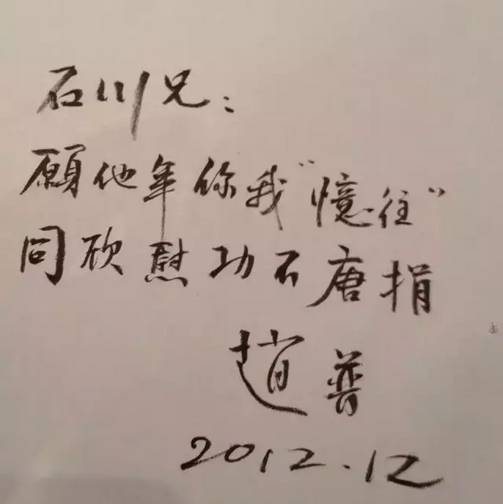 石川兄：
願他年你我"憶往"
同欣慰功不唐捐
趙普
2012.12